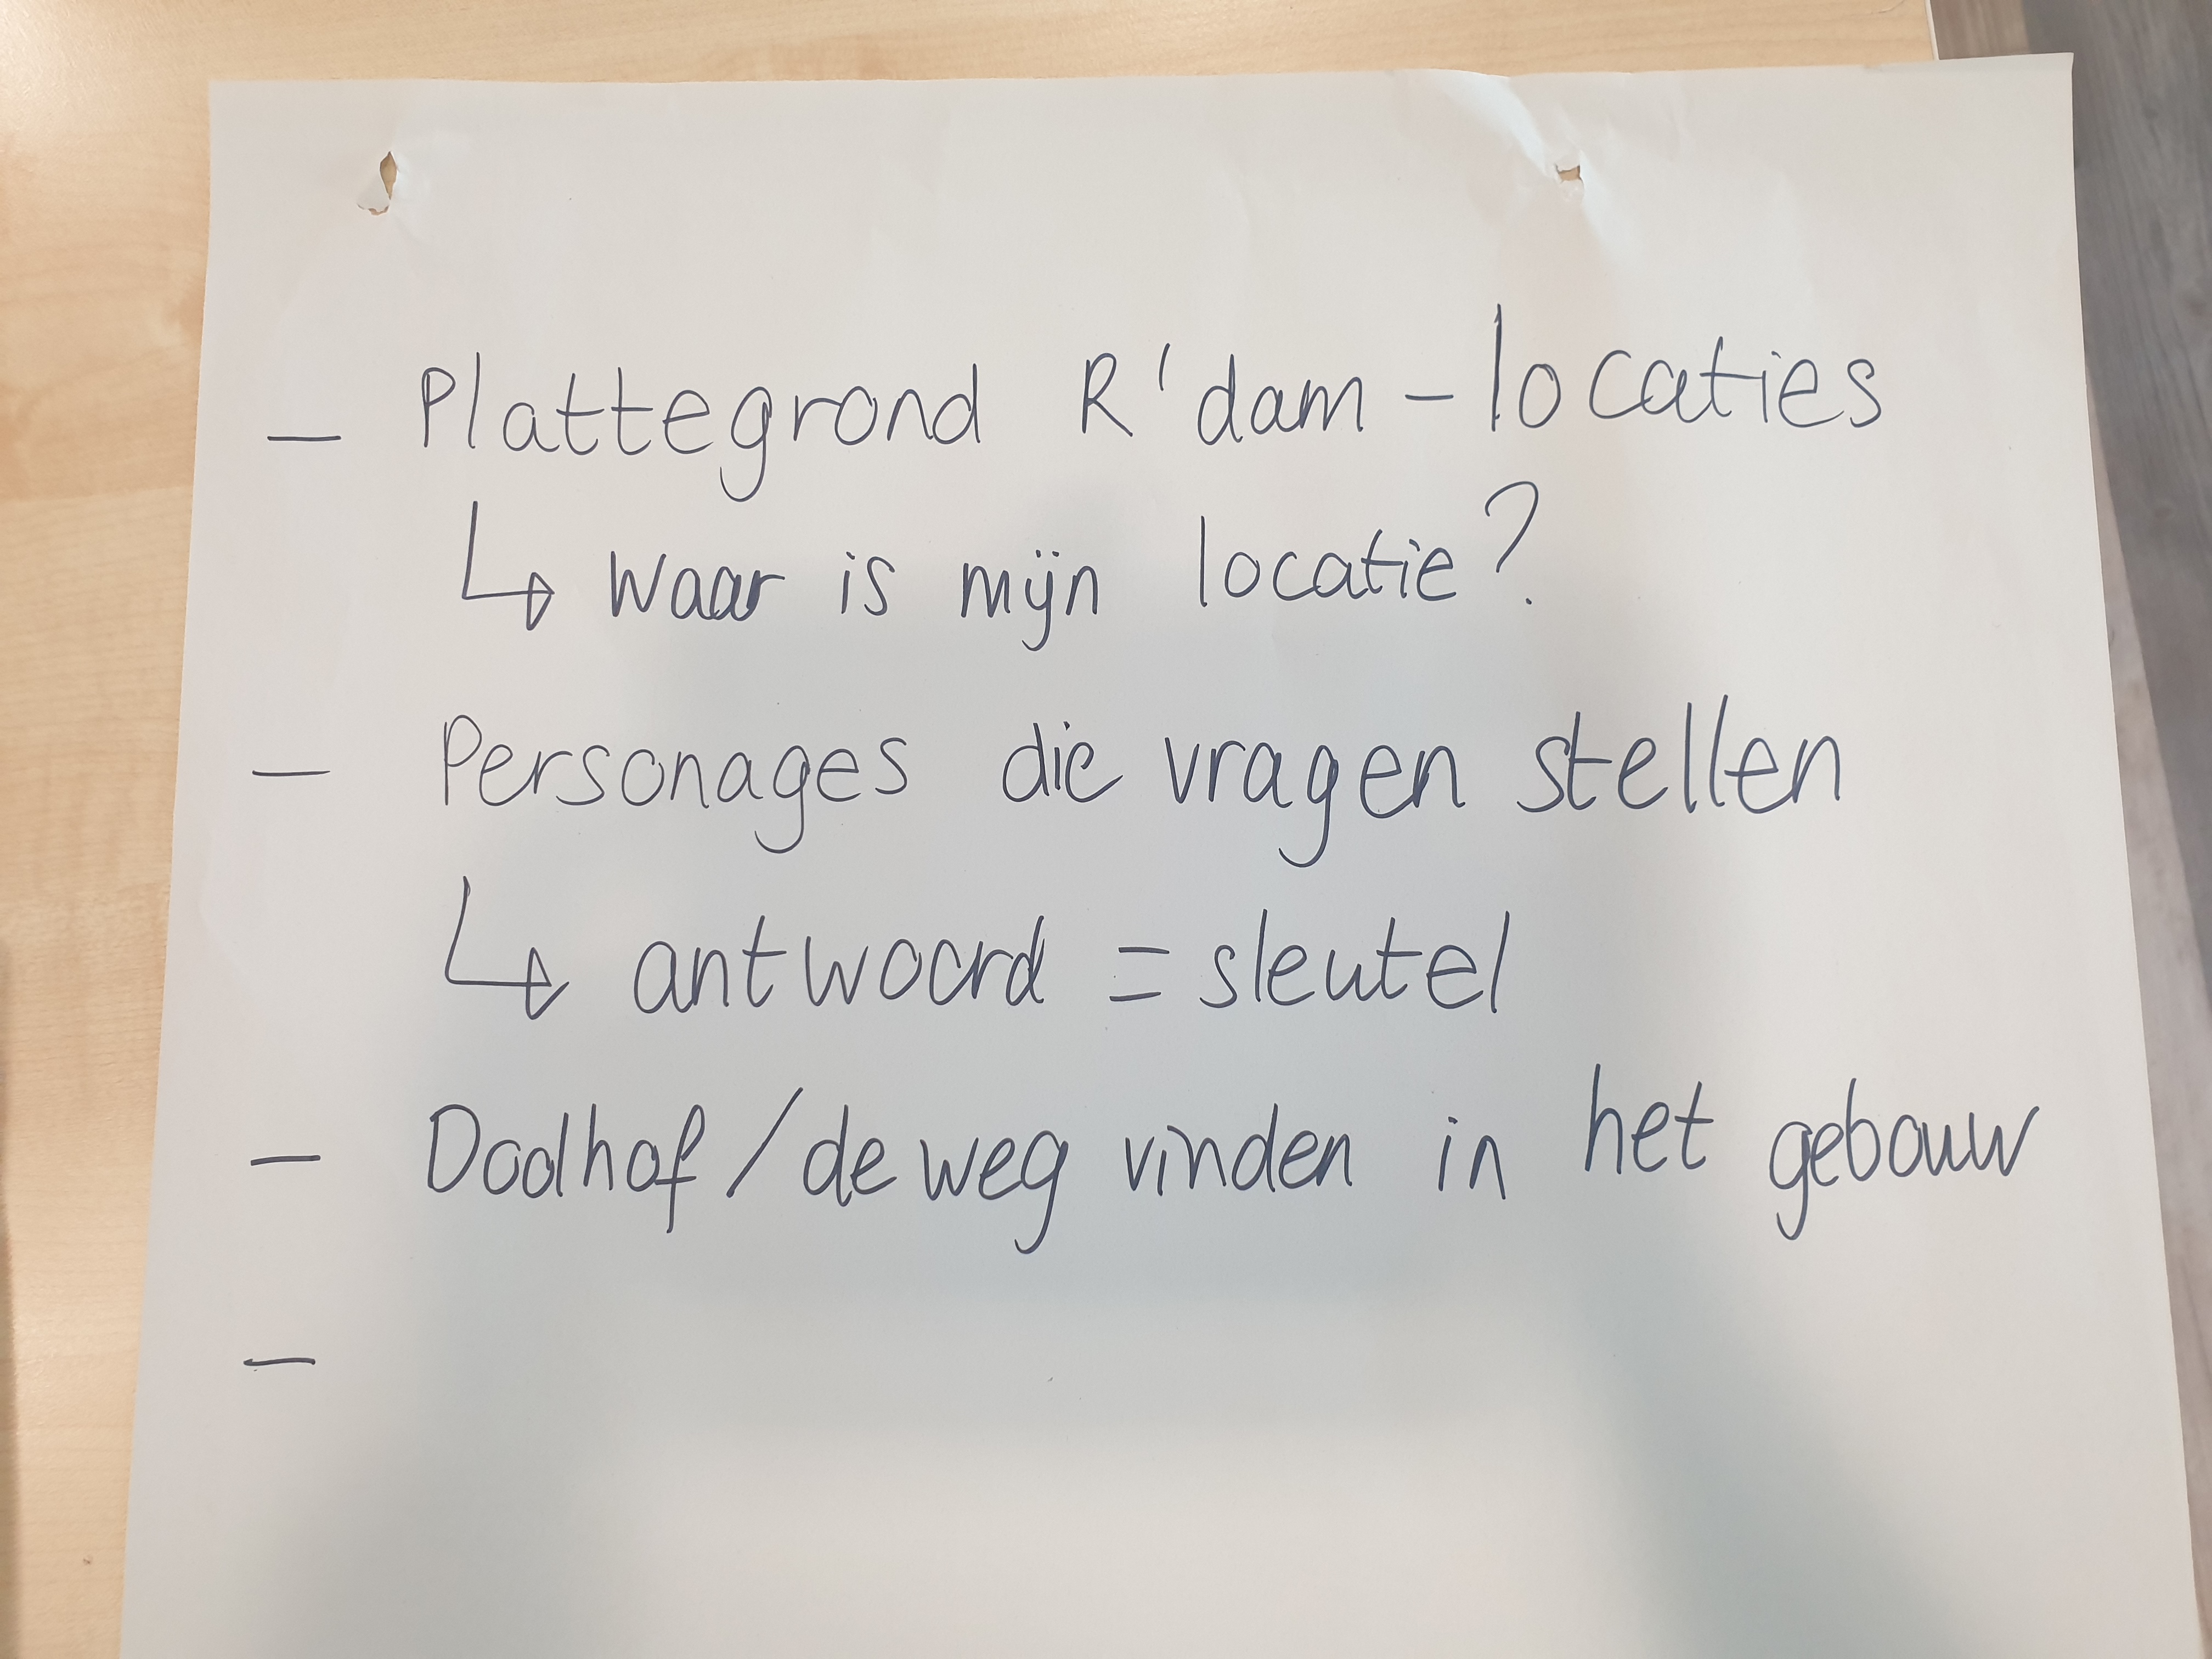 - Plattegrond R'dam - locaties
↳ waar is mijn locatie?
- Personages die vragen stellen
↳ antwoord = sleutel
- Doolhof / de weg vinden in het gebouw
-